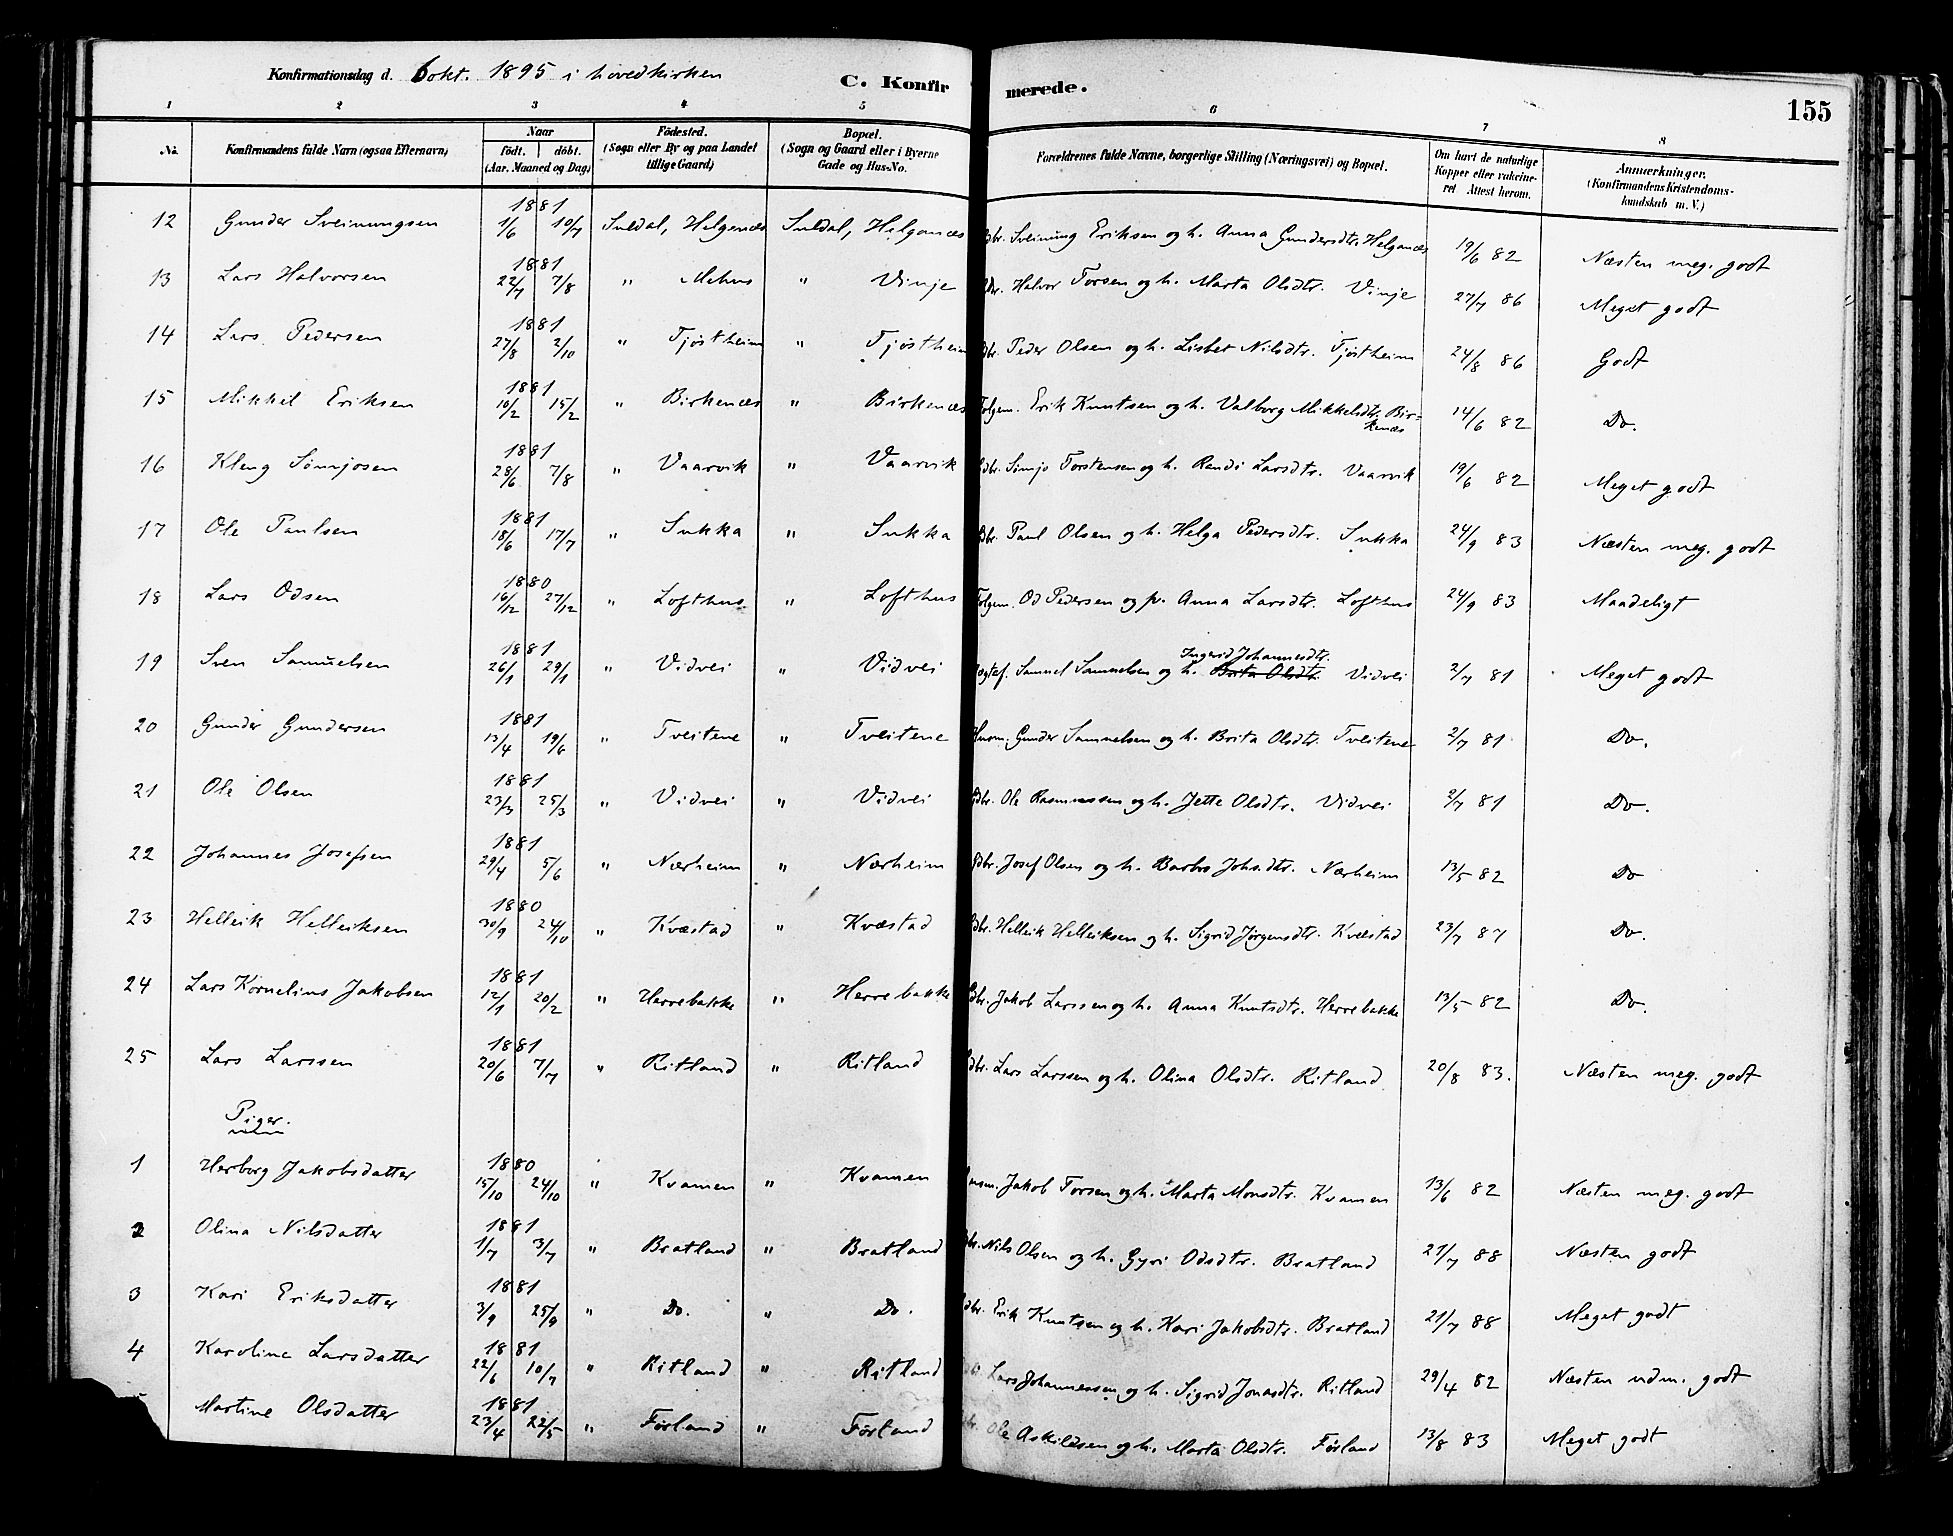 Konfirmationsdag d. 6 okt. 1895 i hovedkirken
C. Konfirmerede.
155
1 2 3 4 5 6 7 8
No. Konfirmandens fulde Navn (ogsaa Efternavn) Naar født. døbt. (Aar, Maaned og Dag) Fødested. (Sogn eller By og paa Landet tillige Gaard) Bopæl. (Sogn og Gaard eller i Byerne Gade og Hus-No. Forældrenes fulde Navne, borgerlige Stilling (Næringsvei) og Bopæl. Om havt de naturlige Kopper eller vakcineret Attest herom. Anmærkninger. (Konfirmandens Kristendomskundskab m. V.)
12 Gunder Sveinungsen 1881 1/6 10/7 Suldal, Helgenæs Suldal, Helganæs Gbr. Sveinung Eriksen og h. Anna Gundersdtr. Helganæs 19/6 82 Næsten meg. godt
13 Lars Halvorsen 1881 22/7 7/8 " Mehus " Vinje Gbr. Halvor Torsen og h. Marta Olsdtr. Vinje 27/7 86 Meget godt
14 Lars Pedersen 1881 27/8 2/10 " Tjøstheim " Tjøstheim Gbr. Peder Olsen og h. Lisbet Nilsdtr. Tjøstheim 24/8 86 Godt
15 Mikkel Eriksen 1881 10/2 15/2 " Birkenæs " Birkenæs Folgem. Erik Knutsen og h. Valborg Mikkelsdtr. Birkenæs 14/6 82 Do.
16 Kleng Simnjosen 1881 28/6 7/8 " Vaarvik " Vaarvik Gbr. Simjo Torstensen og h. Randi Larsdtr. Vaarvik 19/6 82 Meget godt
17 Ole Paulsen 1881 18/6 17/7 " Sukka " Sukka Gbr. Paul Olsen og h. Helga Pedersdtr. Sukka 24/9 83 Næsten meg. godt
18 Lars Odsen 1880 16/12 27/12 " Lofthus " Lofthus Folgem. Od Pedersen og p. Anna Larsdtr. Lofthus 24/9 83 Maadeligt
19 Sven Samuelsen 1881 26/1 29/1 " Vidvei " Vidvei Samuel Samuelsen og h. Brita Olsdtr. Ingrid Johannesdtr. Vidvei 2/7 81 Meget godt
20 Gunder Gundersen 1881 13/4 19/6 " Tveitene " Tveitene Husm. Gunder Samuelsen og h. Brita Olsdtr. Tveitene 2/7 81 Do.
21 Ole Olsen 1881 23/3 25/3 " Vidvei " Vidvei Gbr. Ole Rasmussen og h. Jette Olsdtr. Vidvei 2/7 81 Do.
22 Johannes Josefsen 1881 29/4 5/6 " Nærheim " Nærheim Gbr. Josef Olsen og h. Barbro Johsdtr. Nærheim 13/5 82 Do
23 Helleik Helleiksen 1880 30/9 24/10 " Kvæstad " Kvæstad Gbr. Helleik Helleiksen og h. Sigrid Jørgensdtr. Kvæstad 23/7 87 Do.
24 Lars Kornelius Jakobsen 1881 12/1 20/2 " Herrebakke " Herrebakke Gbr. Jakob Larssen og h. Anna Knutsdtr. Herrebakke 13/5 82 Do.
25 Lars Larssen 1881 20/6 7/7 " Ritland " Ritland Gbr. Lars Larssen og h. Olina Olsdtr. Ritland 20/8 83. Næsten meg. godt
Piger.
1 Herborg Jakobsdatter 1880 15/10 24/10 " Kvamen " Kvamen Husm. Jakob Torsen og h. Marta Monsdtr. Kvamen 13/6 82 Næsten meg. godt
2 Olina Nilsdatter 1881 1/7 3/7 " Bratland " Bratland Gbr. Nils Olsen og h. Gyri Odsdtr. Bratland 21/7 88 Næsten godt
3 Kari Eriksdatter 1881 3/9 25/9 " Do. " Do. Gbr. Erik Knutsen og h. Kari Jakobsdtr. Bratland 21/7 88 Meget godt
4 Karoline Larsdatter 1881 22/6 10/7 " Ritland " Ritland Lars Johannessen og h. Sigrid Jonasdtr. Ritland 29/4 82 Næsten udm. godt
Martine Olsdatter 1881 23/4 22/5 " Førland " Førland Gbr. Ole Askildsen og h. Marta Olsdtr. Førland 13/8 83 Meget godt